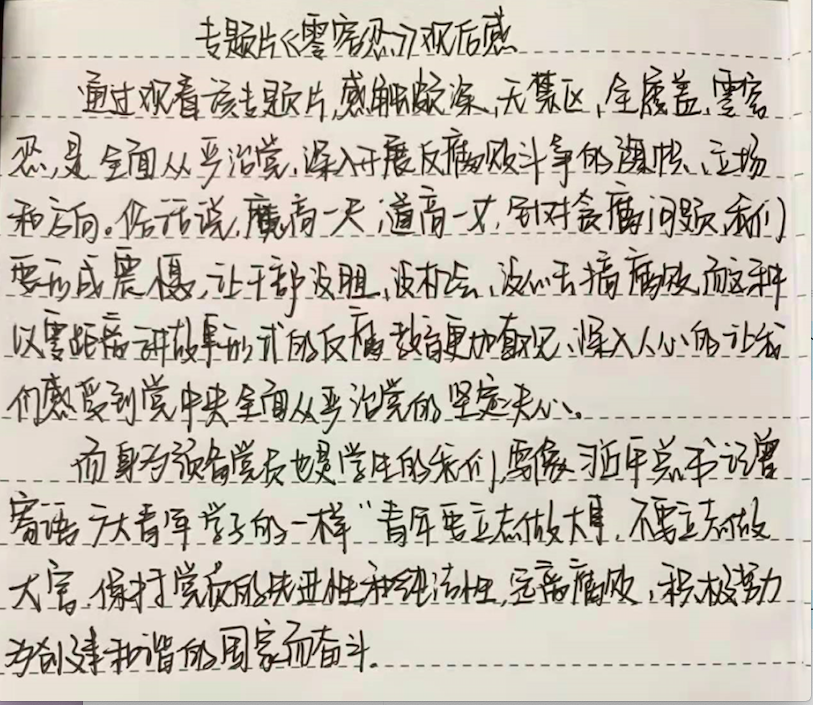 专题片《零容忍》观后感
通过观看该专题片,感触颇深,无禁区、全覆盖、零容
忍,是全面从严治党,深入开展反腐败斗争的旗帜、立场
和方向。俗话说,魔高一尺,道高一丈,针对贪腐问题,我们
要形成震慑,让干部没胆、没机会、没心去搞腐败,而这种
以零距离讲故事形式的反腐教育更加直观、深入人心的让我
们感受到党中央全面从严治党的坚定决心。
而身为预备党员也是学生的我们,要像习近平总书记曾
寄语广大青年学子的一样“青年要立志做大事,不要立志做
大官,保持党员的先进性和纯洁性,远离腐败,积极努力
为创建和谐的国家而奋斗.